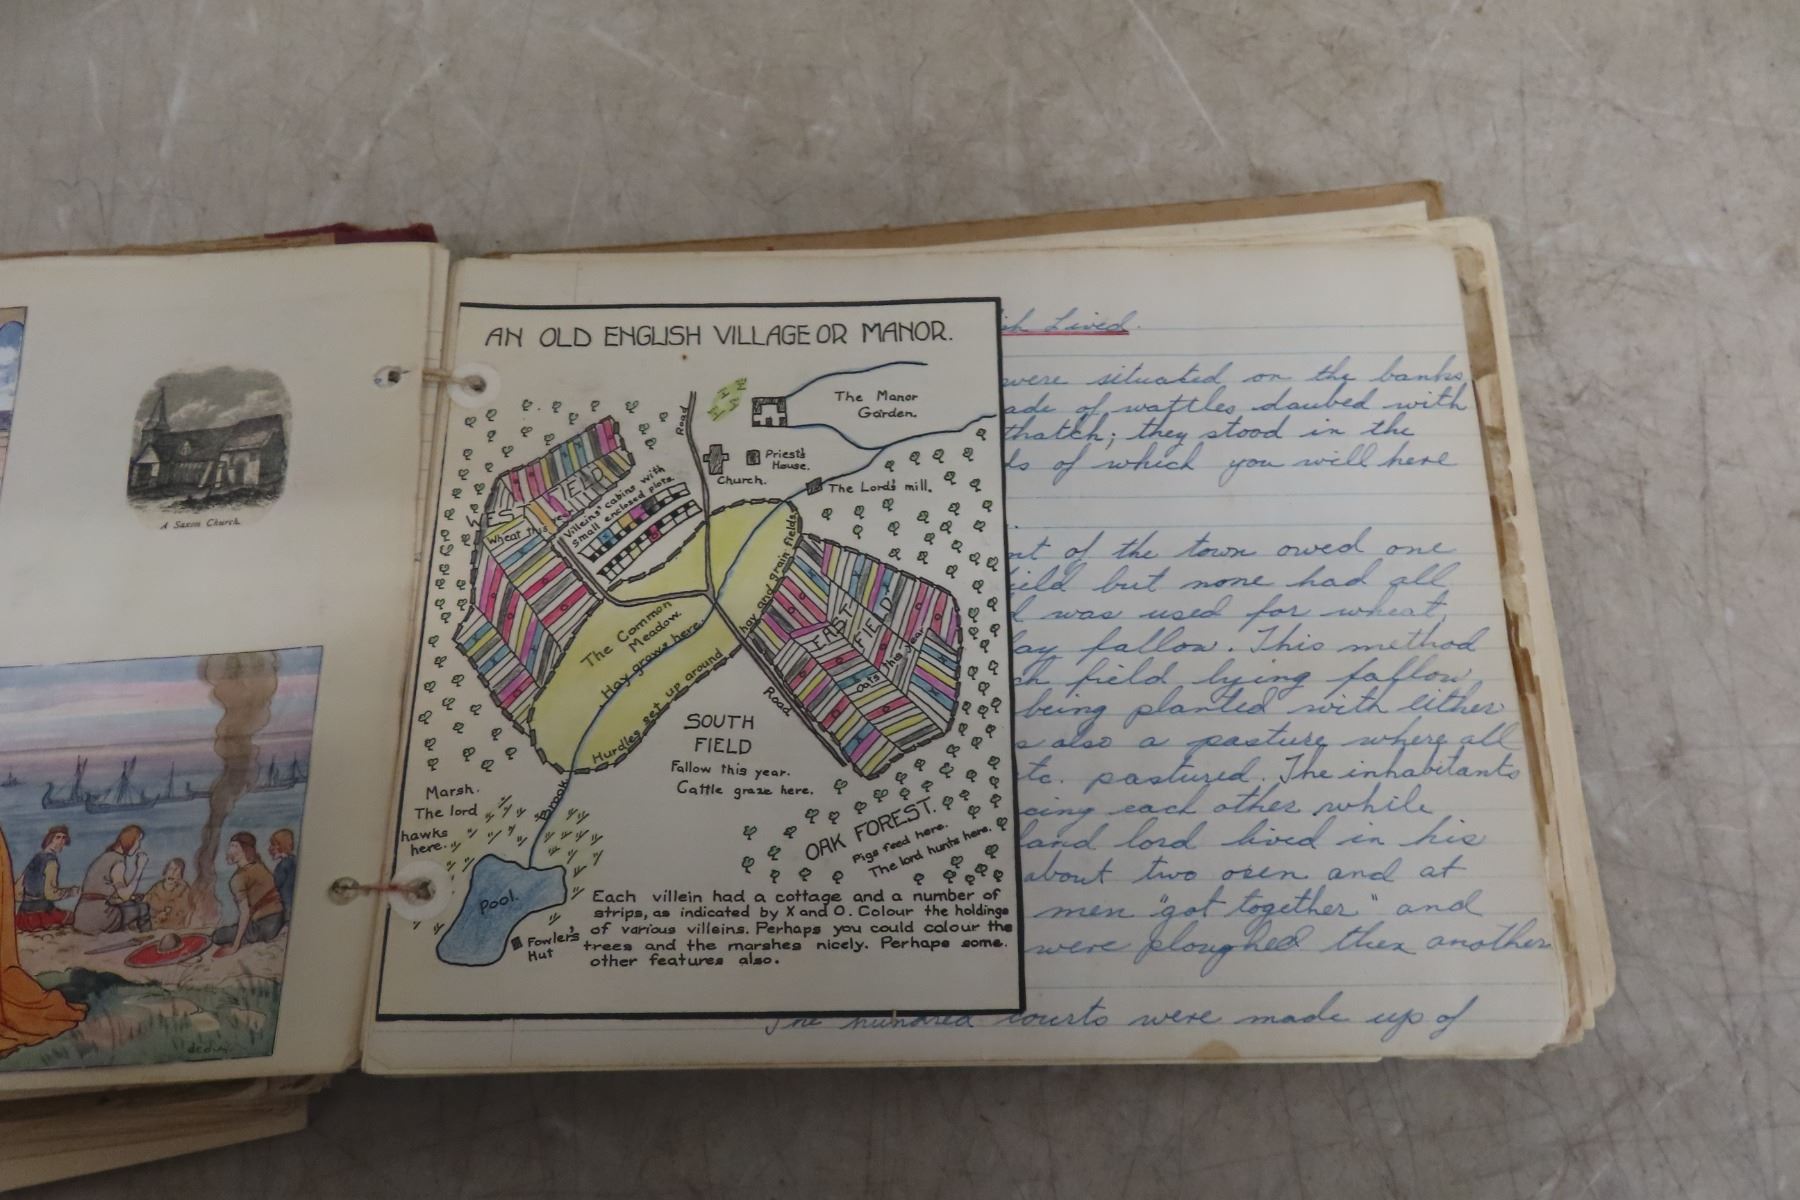 A Saxon Church.
AN OLD ENGLISH VILLAGE OR MANOR.
The Manor
Garden.
Road
Priest's
House.
Church.
The Lord's mill.
WEST FIELD
Wheat this year
Villeins' cabins with
small enclosed plots.
The Common
Meadow.
Hay grows here.
Hurdles set up around
hay and grain fields
EAST
FIELD
Oats this year
Road
SOUTH
FIELD
Fallow this year.
Cattle graze here.
Marsh.
The lord
hawks
here.
Brook
OAK FOREST.
Pigs feed here.
The lord hunts here.
Pool.
Fowler's
Hut
Each villein had a cottage and a number of
strips, as indicated by X and O. Colour the holdings
of various villeins. Perhaps you could colour the
trees and the marshes nicely. Perhaps some
other features also.
Lived.
were situated on the banks
of waffles daubed with
thatch; they stood in the
of which you will here
of the town owed one
but none had all
was used for wheat,
fallow. This method
field lying fallow,
being planted with either
also a pasture where all
pastured. The inhabitants
each other while
land lord lived in his
about two oxen and at
men "got together" and
were ploughed then another
The hundred courts were made up of